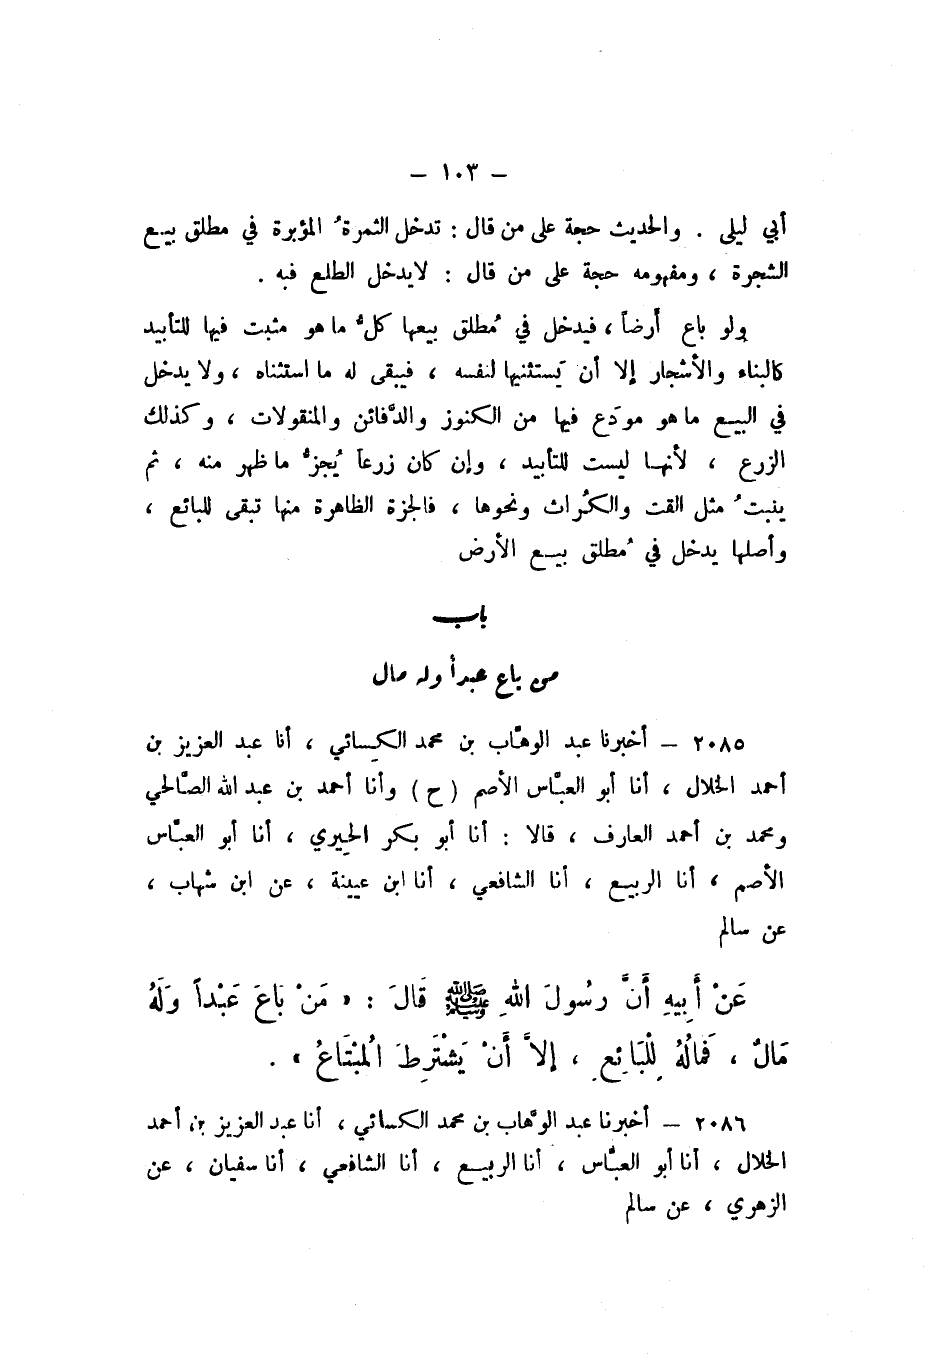 – ١٠٣ –
أبي ليلى . والحديث حجة على من قال : تدخل الثمرةُ المؤبرة في مطلق بيع
الشجرة ، ومفهومه حجة على من قال : لايدخل الطلع فيه .
ولو باع أرضاً ، فيدخل في مُطلق بيعها كلُّ ما هو مثبت فيها للتأبيد
كالبناء والأشجار إلا أن يَستثنيها لنفسه ، فيبقى له ما استثناه ، ولا يدخل
في البيع ما هو مودَع فيها من الكنوز والدَّفائن والمنقولات ، وكذلك
الزرع ، لأنها ليست للتأبيد ، وإن كان زرعاً يُجزُّ ما ظهر منه ، ثم
ينبتُ مثل القت والكُراث ونحوها ، فالجزة الظاهرة منها تبقى للبائع ،
وأصلها يدخل في مُطلق بيع الأرض
باب
من باع عبداً وله مال
٢٠٨٥ – أخبرنا عبد الوهَّاب بن محمد الكِسائي ، أنا عبد العزيز بن
أحمد الخلال ، أنا أبو العبَّاس الأصم ( ح ) وأنا أحمد بن عبد الله الصَّالحي
ومحمد بن أحمد العارف ، قالا : أنا أبو بكر الحِيري ، أنا أبو العبَّاس
الأصم ، أنا الربيع ، أنا الشافعي ، أنا ابن عيينة ، عن ابن شهاب ،
عن سالم
عَنْ أَبِيهِ أَنَّ رسُولَ اللهِ ﷺ قَالَ : « مَنْ بَاعَ عَبْداً وَلَهُ
مَالٌ ، فَمالُهُ لِلْبَائِعِ ، إلاَّ أَنْ يَشْتَرِطَ الْمُبْتَاعُ » .
٢٠٨٦ – أخبرنا عبد الوهَّاب بن محمد الكسائي ، أنا عبد العزيز بن أحمد
الخلال ، أنا أبو العبَّاس ، أنا الربيع ، أنا الشافعي ، أنا سفيان ، عن
الزهري ، عن سالم